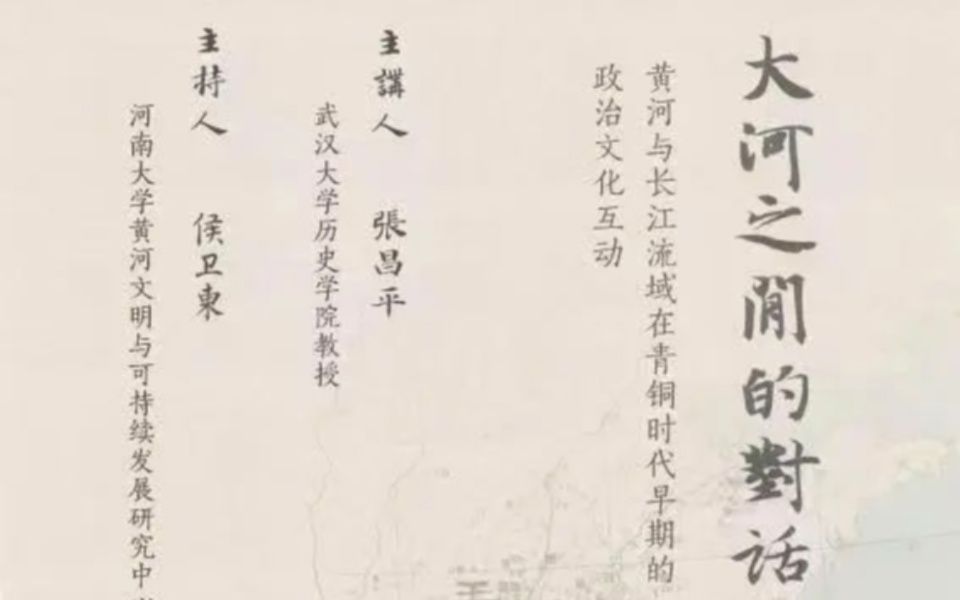 大河之間的對話
黄河与长江流域在青铜时代早期的
政治文化互动
主講人 張昌平
武汉大学历史学院教授
主持人 侯卫東
河南大学黄河文明与可持续发展研究中